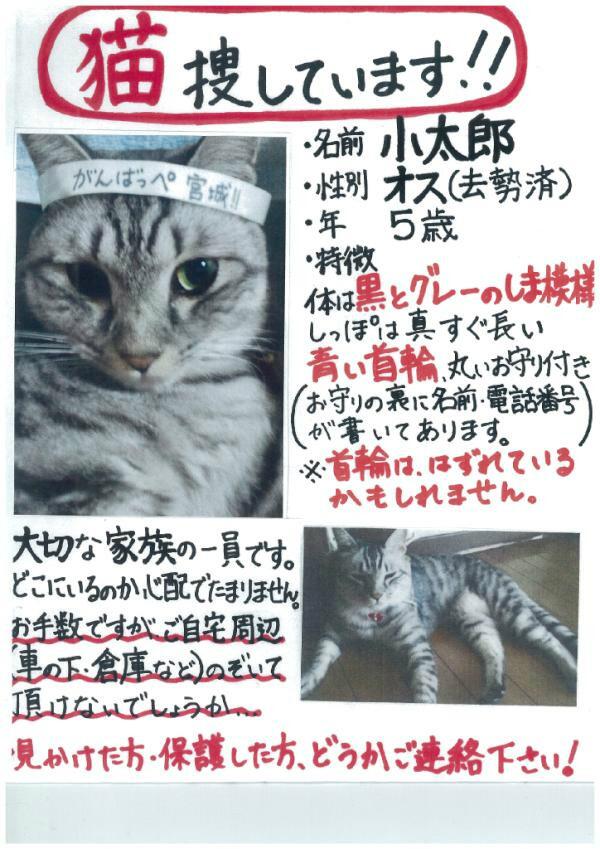 猫 捜しています!!
がんばっぺ 宮城!!
・名前 小太郎
・性別 オス(去勢済)
・年 5歳
・特徴
体は黒とグレーのしま模様
しっぽは真すぐ長い
青い首輪、丸いお守り付き
(お守りの裏に名前・電話番号
が書いてあります。)
※首輪は、はずれている
かもしれません。
大切な家族の一員です。
どこにいるのか心配でたまりません。
お手数ですが、ご自宅周辺
(車の下・倉庫など)のぞいて
頂けないでしょうか...
・見かけた方・保護した方、どうかご連絡下さい!